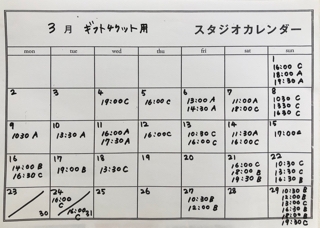 3月 ギフトチケット用 スタジオカレンダー
mon tue wed thu fri sat sun
1
16:00 C
18:00 A
19:30 A
2 3 4 5 6 7 8
19:00 C 16:00 C 13:00 A 11:00 A 10:30 C
14:30 A 18:00 C 13:30 C
16:30 C
9 10 11 12 13 14 15
10:30 A 13:30 A 16:00 A 16:00 C 10:30 C 11:30 A 17:00 A
17:30 A 16:00 C 15:00 C
16 17 18 19 20 21 22
14:00 B 19:00 B 13:30 C 16:00 C 10:30 C
16:30 C 18:00 B 13:30 C
19:30 B 16:30 B
23 24 25 26 27 28 29
30 16:00 C 10:30 B 10:30 B
16:00 C 31 12:00 B 12:00 B
13:30 C
16:30 B
18:00 B
19:30 C